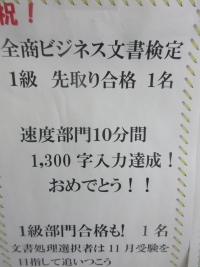 祝！
全商ビジネス文書検定
1級 先取り合格 1名
速度部門10分間
1,300字入力達成！
おめでとう！！
1級部門合格も! 1名
文書処理選択者は11月受験を
目指して追いつこう